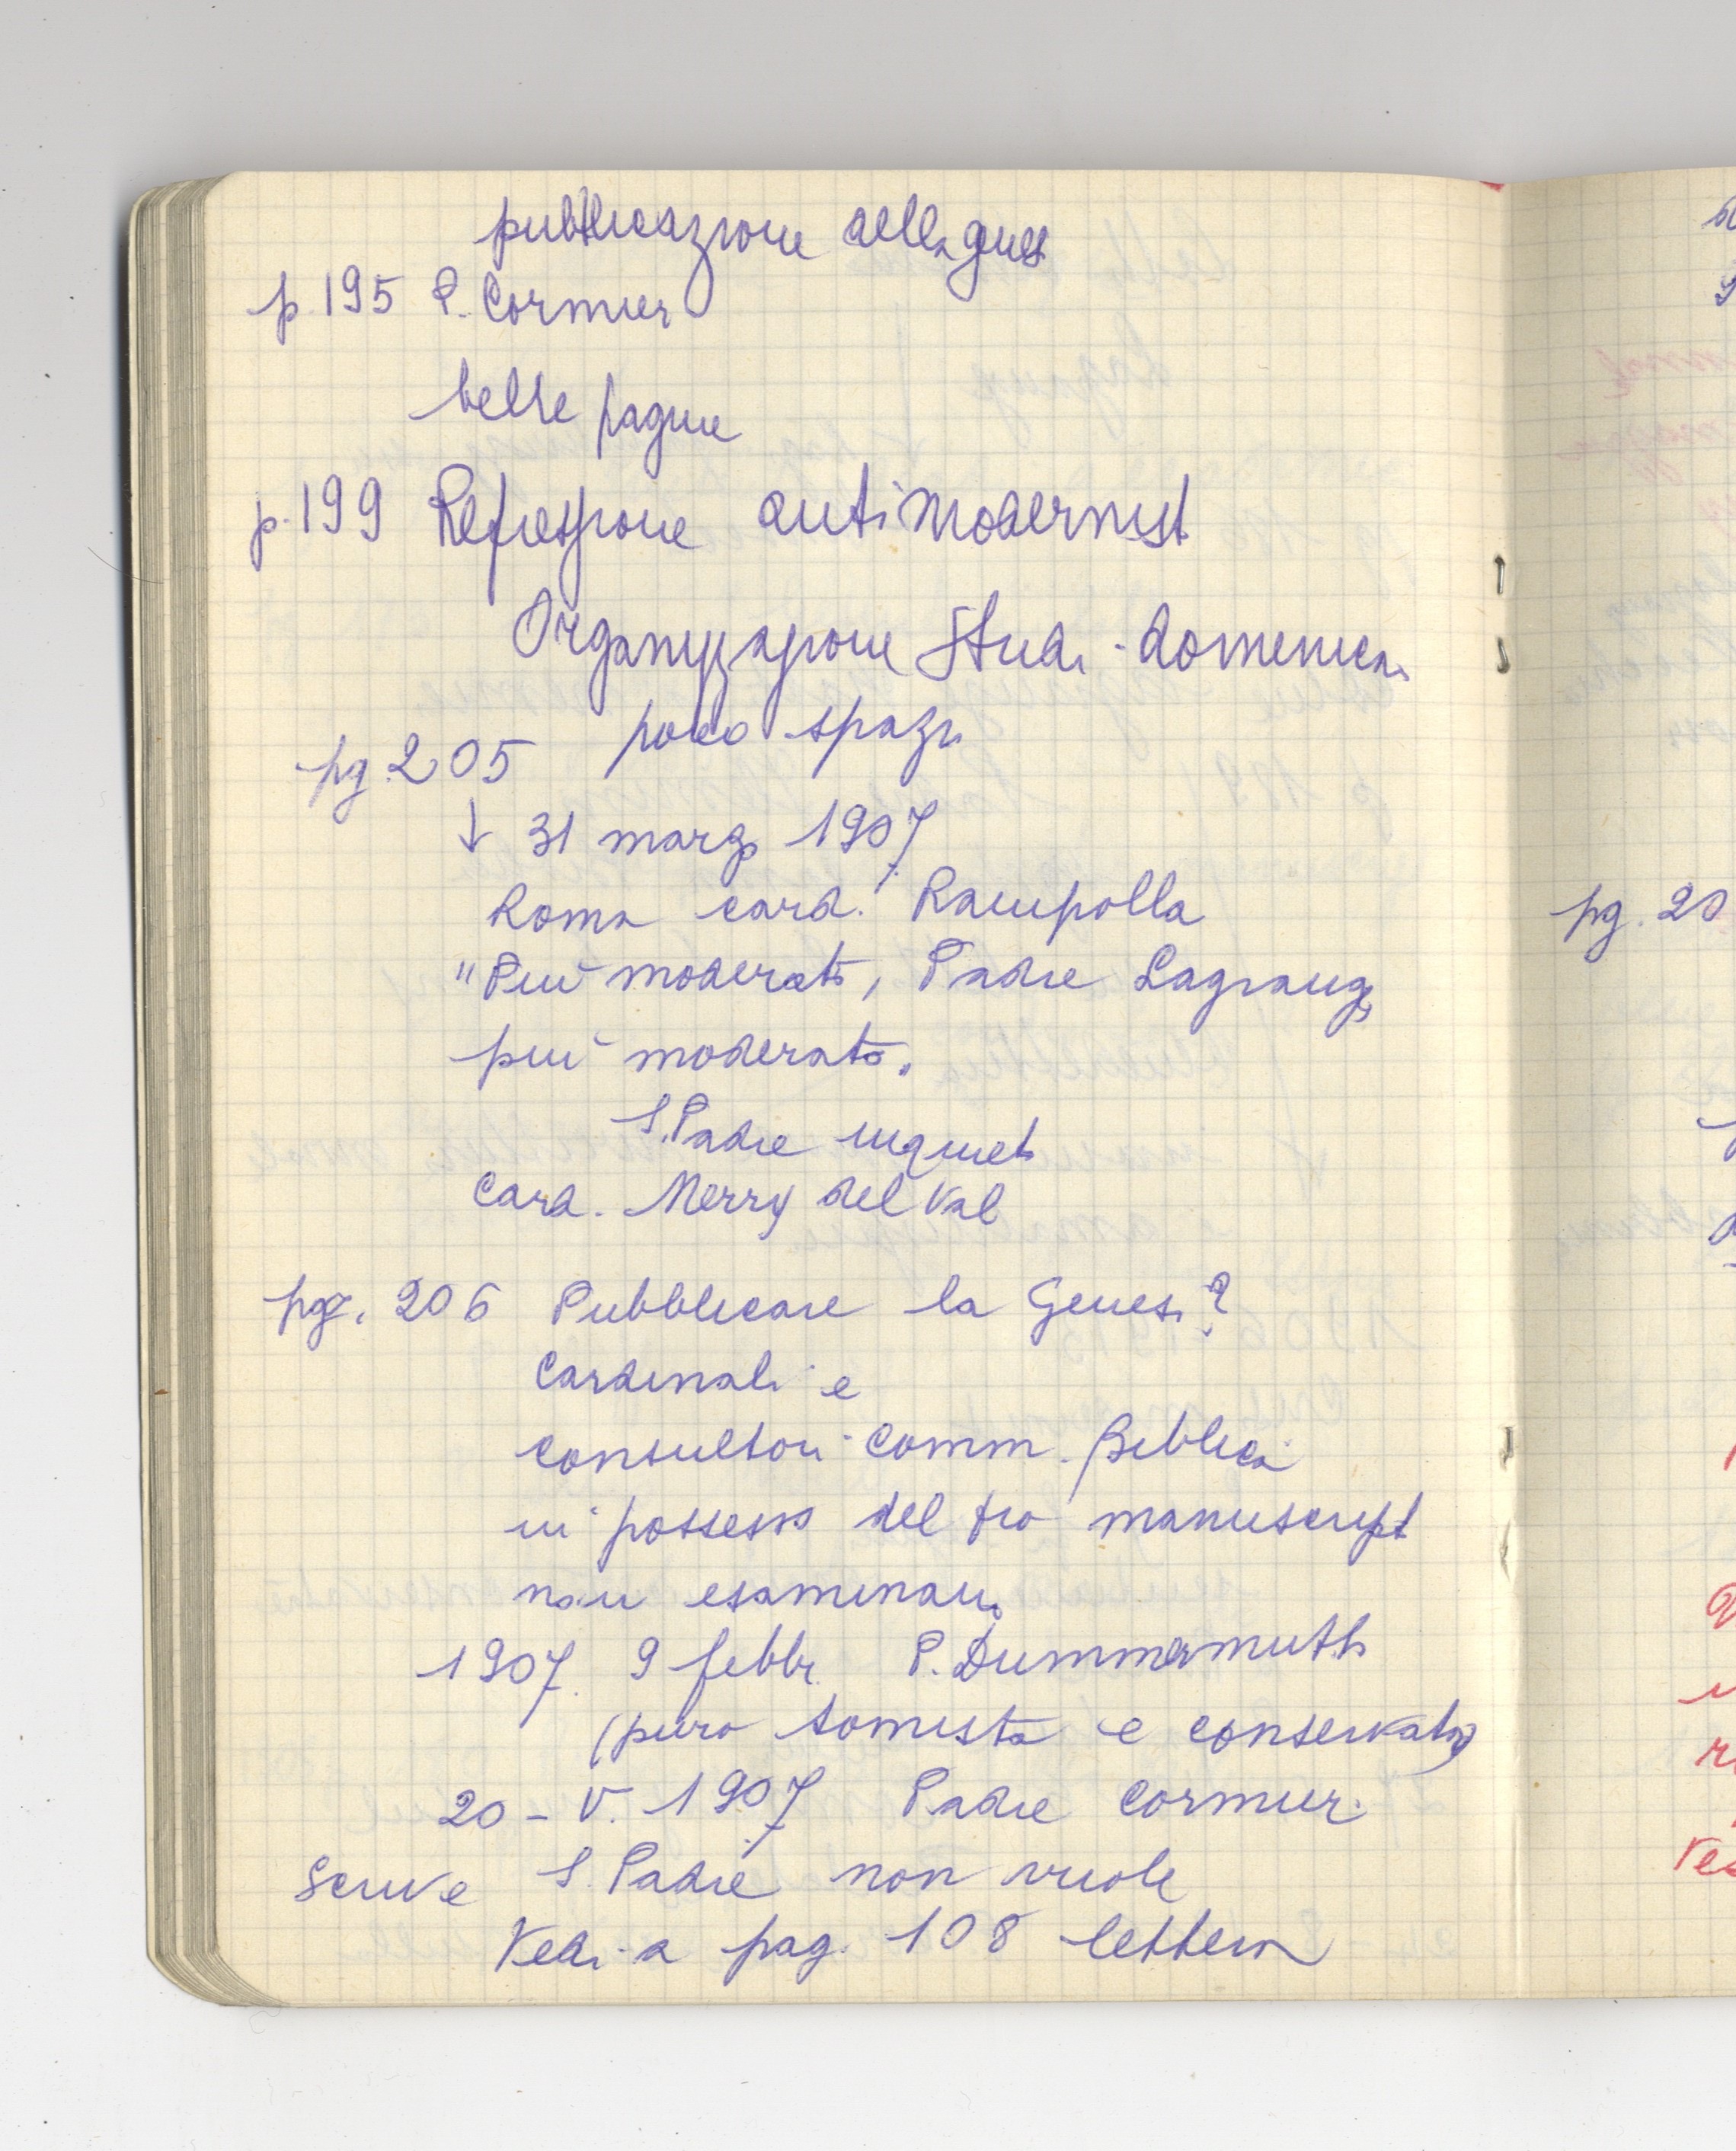 pubblicazione della gues
p. 195 P. Cormier
belle pagine
p. 199 Repressione antimodernist
Organizzazione Studi domenica
poco spazi
pg. 205
↓ 31 marzo 1907
Roma card. Rampolla
"Più moderato, Padre Lagrange
più moderato.
S. Padre inquieto
Card. Merry del Val
pg. 206 Pubblicare la Genesi?
Cardinali e
consultori Comm. Biblica
in possesso del suo manuscript
non esaminano
1907. 9 febbr. P. Dummermuth
(puro tomista e conservatore)
20 - V. 1907 Padre Cormier.
Scrive S. Padre non vuole
Vedi a pag. 108 lettera
pg. 20